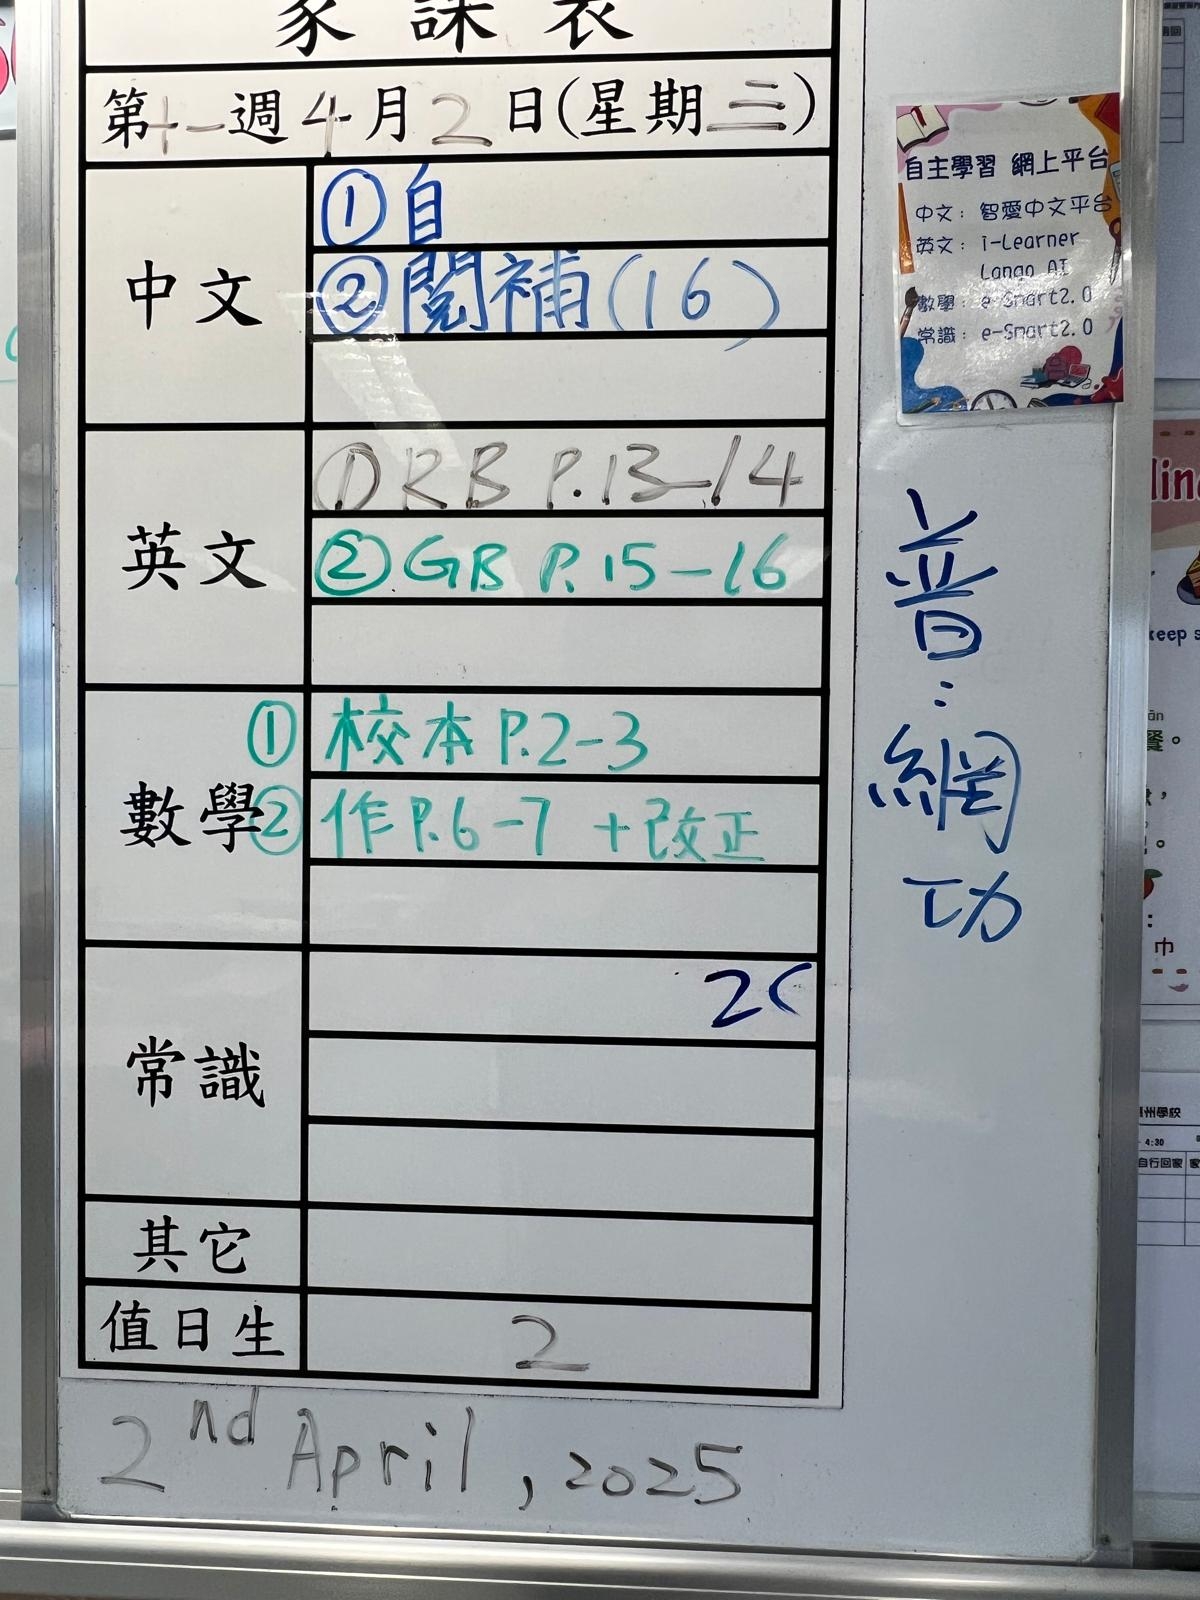 家課表
第十一週4月2日(星期三)
中文
①自
②閱補(16)
英文
①RB P.13-14
②GB P.15-16
數學
①校本P.2-3
②作P.6-7 +改正
常識
2(
其它
值日生
2
2nd April, 2025
自主學習 網上平台
中文: 智愛中文平台
英文: i-Learner
Lango AI
數學: e-Smart2.0
常識: e-Smart2.0
普:網功
keep s
餐。
巾
州學校
4:30
自行回家